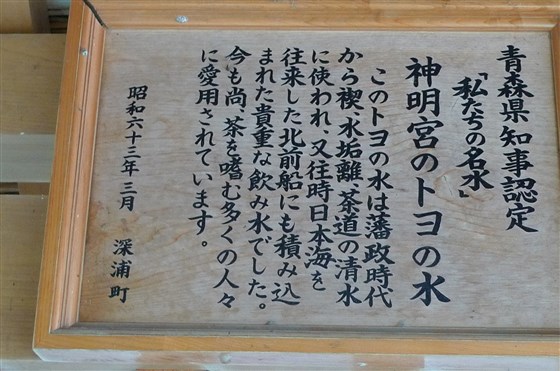 青森県知事認定
「私たちの名水」
神明宮のトヨの水
このトヨの水は藩政時代
から禊、水垢離、茶道の清水
に使われ、又往時日本海を
往来した北前船にも積み込
まれた貴重な飲み水でした。
今も尚、茶を嗜む多くの人々
に愛用されています。
昭和六十三年三月 深浦町